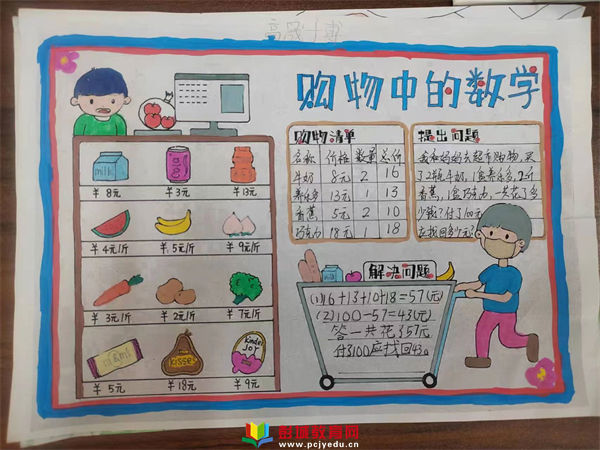 购物中的数学
购物清单
名称 价格 数量 总价
牛奶 8元 2 16
养乐多 13元 1 13
香蕉 5元 2 10
巧克力 18元 1 18
提出问题
我和妈妈去超市购物,买
了2瓶牛奶,1盒养乐多,2斤
香蕉,1盒巧克力,一共花了多
少钱?付了100元
应找回多少元?
milk
¥8元 ¥3元 ¥13元
¥4元1斤 ¥5元1斤 ¥9元1斤
¥3元1斤 ¥2元1斤 ¥7元1斤
m&m's
Kisses
Kinder
JOY
¥5元 ¥18元 ¥9元
解决问题
(1)16+13+10+18=57(元)
(2)100-57=43(元)
答一共花了57元
付了100应找回43。
彭城教育网
www.pcjyedu.cn